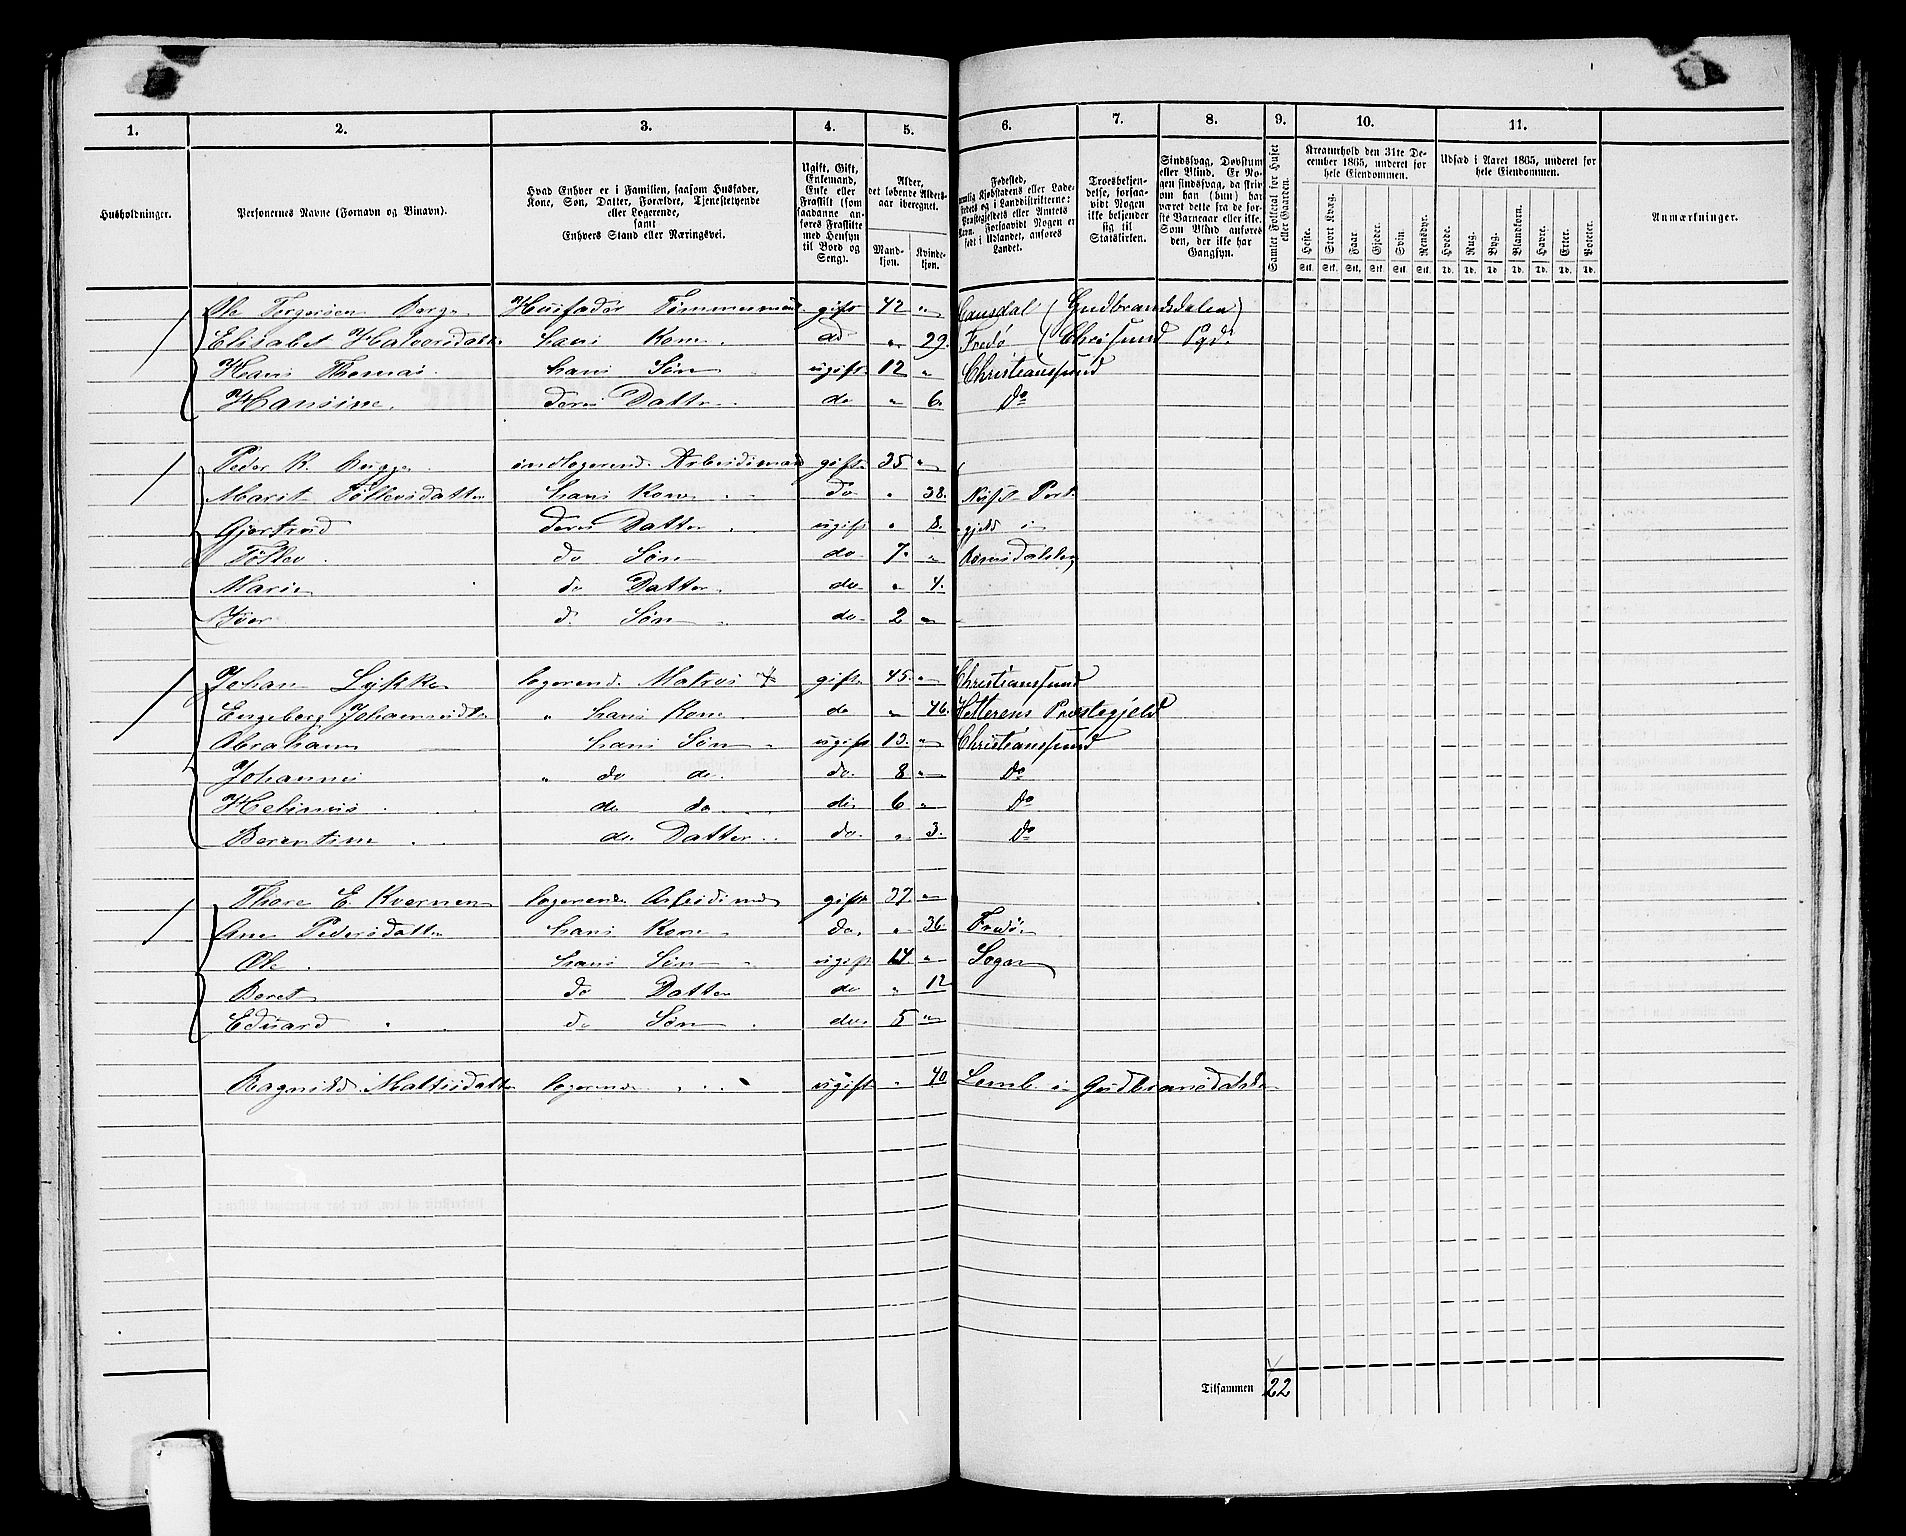 1. 2. 3. 4. 5. 6. 7. 8. 9. 10. 11.
Husholdninger.
Personernes Navne (Fornavn og Binavn).
Hvad Enhver er i Familien, saasom Husfader,
Kone, Søn, Datter, Forældre, Tjenestetyende
eller Logerende,
samt
Enhvers Stand eller Næringsvei.
Ugift, Gift,
Enkemand,
Enke eller
Fraskilt (som
saadanne an-
føres Fraskilte
med Hensyn
til Bord og
Seng).
Alder,
det løbende Alders-
aar iberegnet.
Mand-
kjøn.
Kvinde-
kjøn.
Fødested,
nemlig Kjøbstadens eller Lade-
stedets og i Landdistrikterne:
Præstegjeldets eller Amtets
Navn. Forsaavidt Nogen er
født i Udlandet, anføres
Landet.
Troesbekjen-
delse, forsaa-
vidt Nogen
ikke bekjender
sig til
Statskirken.
Sindssvag, Døvstum
eller Blind. Er No-
gen sindssvag, da skriv
om han (hun) har
været dette fra de før-
ste Barneaar eller ikke.
Som Blind anføres
den, der ikke har
Gangsyn.
Samlet Folketal for Huset
eller Gaarden.
Kreaturhold den 31te De-
cember 1865, underet for
hele Eiendommen.
Heste. Stort Kvæg. Faar. Gjeder. Svin Rensdyr.
Stk. Stk. Stk. Stk. Stk. Stk.
Udsæd i Aaret 1865, underet for
hele Eiendommen.
Hvede. Rug. Byg. Blandkorn. Havre. Erter. Poteter.
Td. Td. Td Td. Td. Td. Td.
Anmærkninger.
Ole Torgersen Berge Husfader Tømmermand gift 42 " (Gudbrandsdalen)
Elisabet Halvorsdatter hans Kone do " 29. Fredø (Chrisund Pgd.
Hans Thomas. hans Søn ugift. 12 " Christianssund
Hansine. deres Datter do " 6. Do
Peder K. indlogerend. Arbeidsmand gift. 35 "
Marit Tøllevsdatter hans Kone do " 38.
Gjertrud deres Datter ugift " 8. gjeld i
Tøllev do Søn do 7. " Romsdalen
Marie do Datter do " 4.
Iver d. Søn do 2 "
Johan Lykke logerend. Matros gift. 45. " Christianssund
Engeborg Johannesdtr " hans Kone do " 46. Hitterens Præstegjeld
Abraham hans Søn ugift. 13. " Christianssund
Johannes " do do. do. 8 " Do
do do do 6 " Do
Berentine do Datter do. " 3. Do
Thore E. Kvernen logerende Arbeidsmd gift 37 "
Ane Pedersdatter hans Kone do. " 36 Fredø.
Ole. hans Søn ugift 14 " Sogn
Beret do Datter do " 12
Eduard do Søn do. 5 "
Ragnild logerende ugift " 40 i Gudbrandsdalen
Tilsammen 22